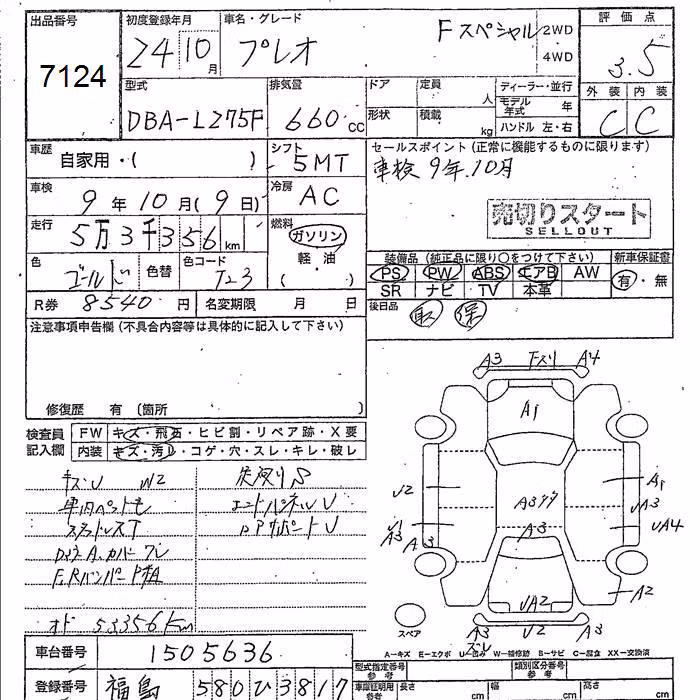 出品番号 初度登録年月 車名・グレード 評価点
7124 24 10月 プレオ Fスペシャル 2WD 4WD 3.5
型式 排気量 ドア 定員 人 ディーラー・並行 外装 内装
DBA-L275F 660cc 形状 積載 kg モデル年式 年 ハンドル 左・右 C C
車歴 自家用・( ) シフト 5MT セールスポイント(正常に機能するものに限ります)
車検 9年10月(9日) 冷房 AC 車検9年10月
走行 5万3千356km 燃料 ガソリン 軽・油 ( ) 売切りスタート
SELLOUT
色 ゴールド 色替 色コード T23 装備品(純正品に限り○をつけて下さい) 新車保証書
PS PW ABS エアB AW 有・無
R券 8540円 名変期限 月 日 SR ナビ TV 本革
注意事項申告欄(不具合内容等は具体的に記入して下さい) 後日品 取 保
修復歴 有 (箇所 )
検査員記入欄 FW キズ・飛石・ヒビ割・リペア跡・X要
内装 キズ・汚レ・コゲ・穴・スレ・キレ・破レ
キズU W2
エンドパネルU
スタッドレスT
PPサポートU
F.Rバンパー
オド 53356Km
A3 A4
A1
U2 A1
UA3
A3 UA4
A3
A3
UA2 A2
A3 U2 A3
スペア
A-キズ E-エクボ U-凹み W-補修跡 S-サビ C-腐食 XX-交換済
車台番号 1505636
型式指定番号 参考 類別区分番号 参考
登録番号 福島 580 ひ 3817
車庫証明用 参考 長さ cm 幅 cm 高さ cm